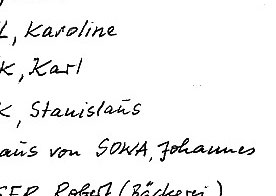 L, Karoline
K, Karl
K, Stanislaus
aus von SOWA, Johannes
SER Robert (Bäckerei)